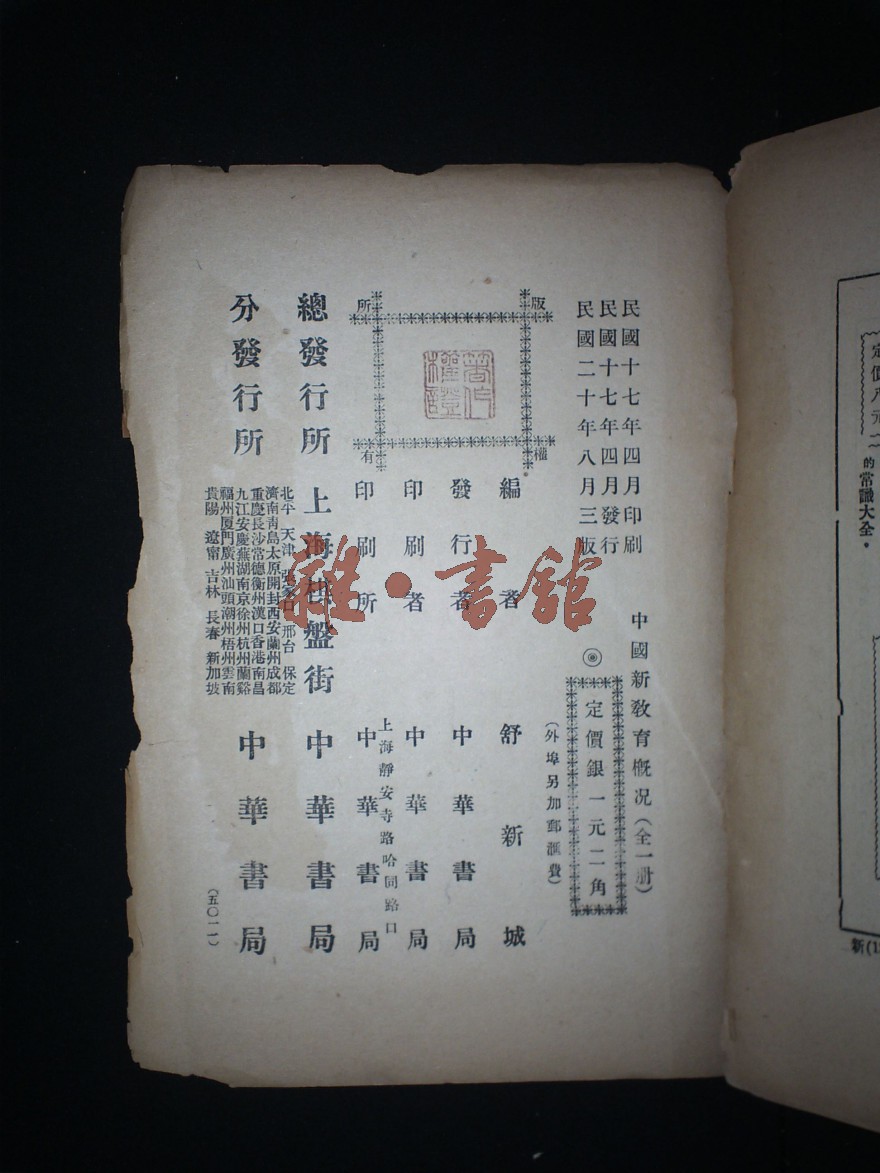 民國十七年四月印刷
民國十七年四月發行
民國二十年八月三版
中國新教育概况(全一册)
◉定價銀一元二角
(外埠另加郵滙費)
編者 舒新城
發行者 中華書局
印刷者 中華書局
上海靜安寺路哈同路口
印刷所 中華書局
版權所有
著作權證
總發行所 上海棋盤街 中華書局
分發行所 中華書局
北平 天津 張家口 邢台 保定
濟南青島太原開封西安蘭州成都
重慶長沙常德衡州漢口香港南昌
九江安慶蕪湖南京徐州杭州蘭谿
福州厦門廣州汕頭潮州梧州雲南
貴陽 遼甯 吉林 長春 新加坡
(五〇一一)
雜·書館
定價八元二
的常識大全。
新(1